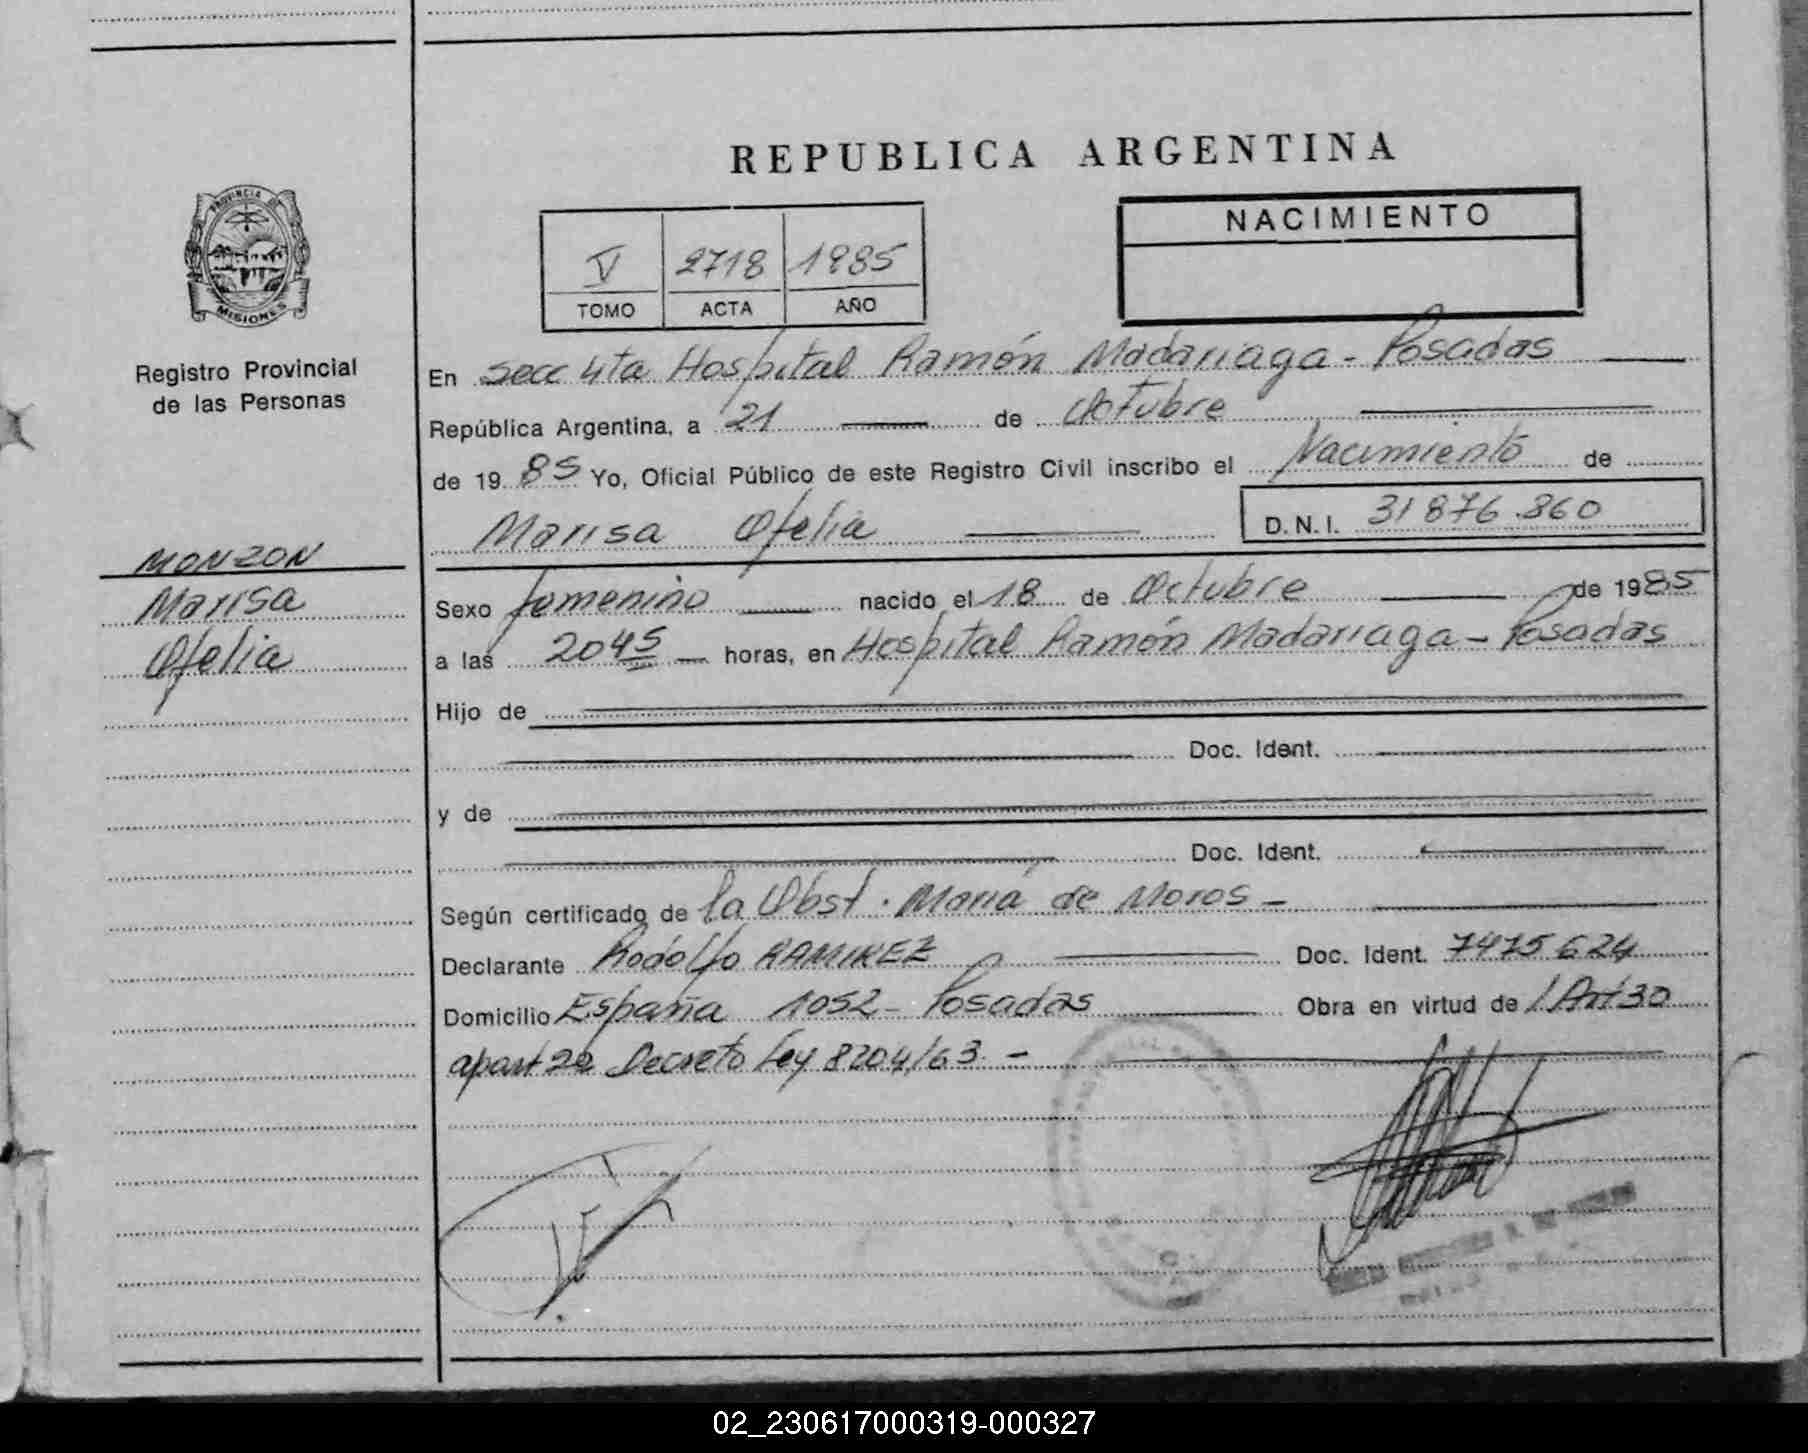 REPUBLICA ARGENTINA
PROVINCIA DE
MISIONES
Registro Provincial
de las Personas
V 2718 1985
TOMO ACTA AÑO
NACIMIENTO
En Secc 4ta Hospital Ramón Madariaga - Posadas
República Argentina, a 21 de Octubre
de 1985 Yo, Oficial Público de este Registro Civil inscribo el Nacimiento de
Marisa Ofelia D.N.I. 31 876.860
MONZON
Marisa
Ofelia
Sexo femenino nacido el 18 de Octubre de 1985
a las 2045 horas, en Hospital Ramón Madariaga - Posadas
Hijo de
Doc. Ident.
y de
Doc. Ident.
Según certificado de la Obst. María de Moros -
Declarante Rodolfo RAMIREZ Doc. Ident. 7475624
Domicilio España 1052 - Posadas Obra en virtud de / Art 30
apart 2º Decreto Ley 8204/63. -
02_230617000319-000327